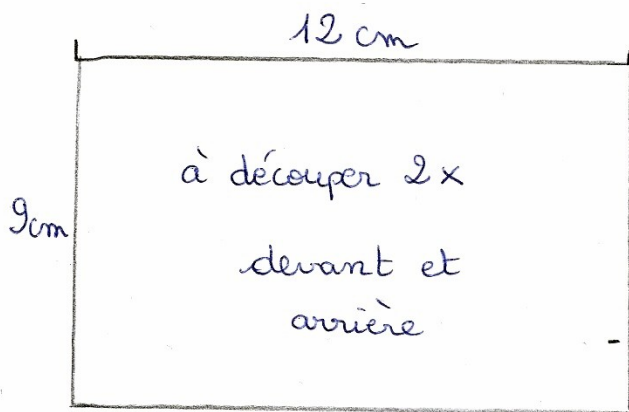 12 cm
à découper 2x
9cm
devant et
arrière